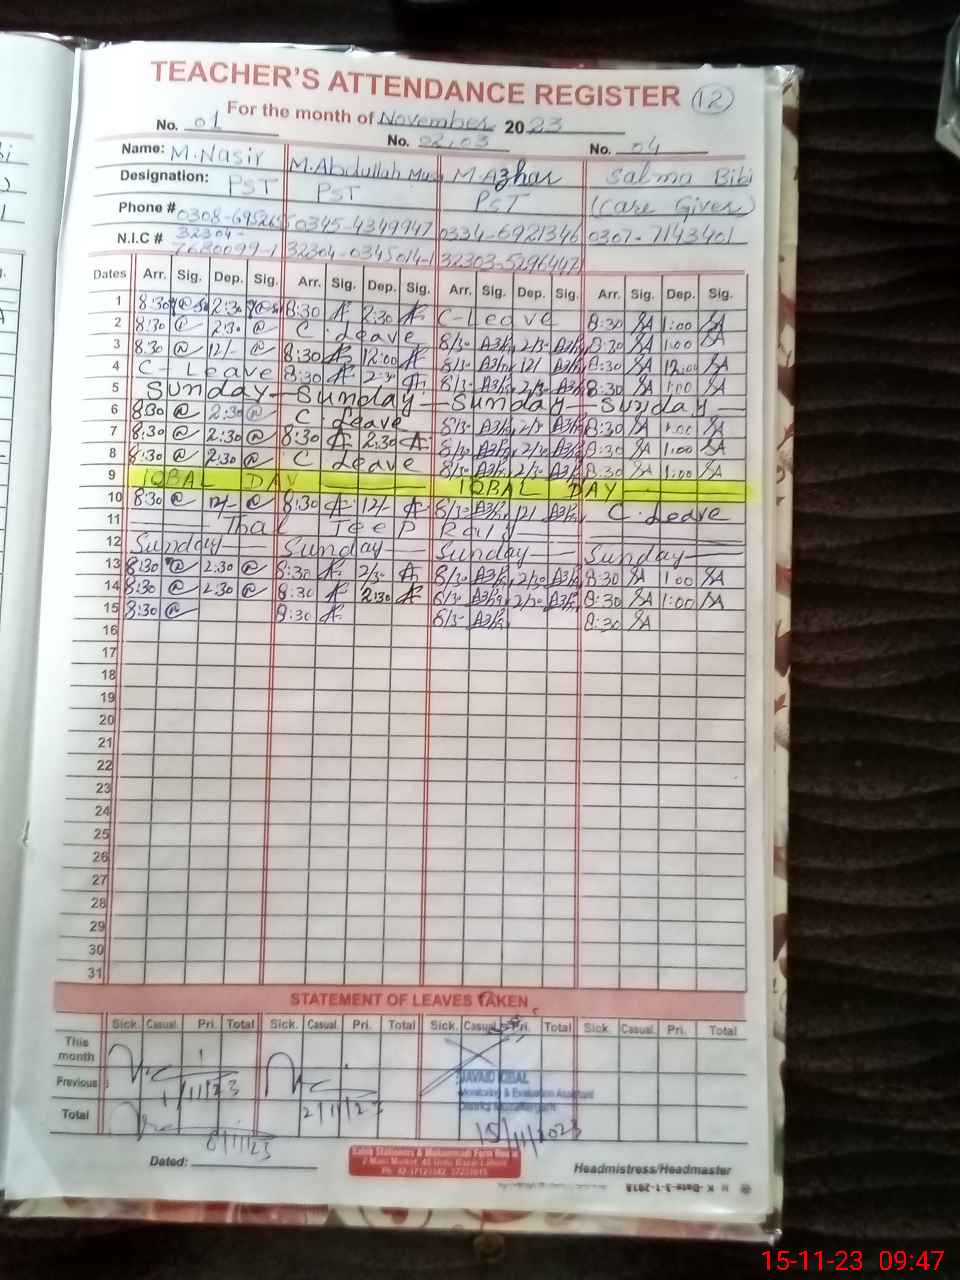 TEACHER'S ATTENDANCE REGISTER 12
For the month of November 2023
No. 01 No. 02,03 No. 04
Name: M.Nasir M.Abdullah M.Azhar Salma Bibi
Designation: PST PST PST (Care Giver)
Phone # 0345-4349947 0334-6921346 0307-7143401
N.I.C # 32304-7630099-1 32304-0345014-1
Dates Arr. Sig. Dep. Sig. Arr. Sig. Dep. Sig. Arr. Sig. Dep. Sig. Arr. Sig. Dep. Sig.
1 8:30 2:30 8:30 A 2:30 A C-Leave 8:30 SA 1:00 SA
2 8:30 @ 2:30 @ C.Leave 8/30 2/30 8:30 SA 1:00 SA
3 8:30 @ 12/- @ 8:30 A 12:00 A 8/30 12/ 8:30 SA 12:00 SA
4 C-Leave 8:30 A 2:30 A 8/30 2/30 8:30 SA 1:00 SA
5 Sunday — Sunday — Sunday — Sunday —
6 8:30 @ 2:30 @ C Leave 8/30 2/30 8:30 SA 1:00 SA
7 8:30 @ 2:30 @ 8:30 A 2:30 A 8/30 2/30 8:30 SA 1:00 SA
8 8:30 @ 2:30 @ C Leave 8/30 2/30 8:30 SA 1:00 SA
9 IQBAL DAY IQBAL DAY
10 8:30 @ 12/- @ 8:30 A 12/- A 8/30 12/ C.Leave
11 Thal Jeep Raly
12 Sunday — Sunday — Sunday — Sunday —
13 8:30 @ 2:30 @ 8:30 A 2/30 A 8/30 2/30 8:30 SA 1:00 SA
14 8:30 @ 2:30 @ 8:30 A 2:30 A 8/30 2/30 8:30 SA 1:00 SA
15 8:30 @ 8:30 A 8/30 8:30 SA
16
17
18
19
20
21
22
23
24
25
26
27
28
29
30
31
STATEMENT OF LEAVES TAKEN
Sick. Casual Pri. Total Sick. Casual. Pri. Total Sick. Casual Pri. Total Sick. Casual. Pri. Total
This month
Previous 1/11/23
JAVAID IQBAL
Monitoring & Evaluation Assistant
District Muzaffargarh
Total 6/11/23 2/11/23 15/11/2023
Dated:
Headmistress/Headmaster
15-11-23 09:47